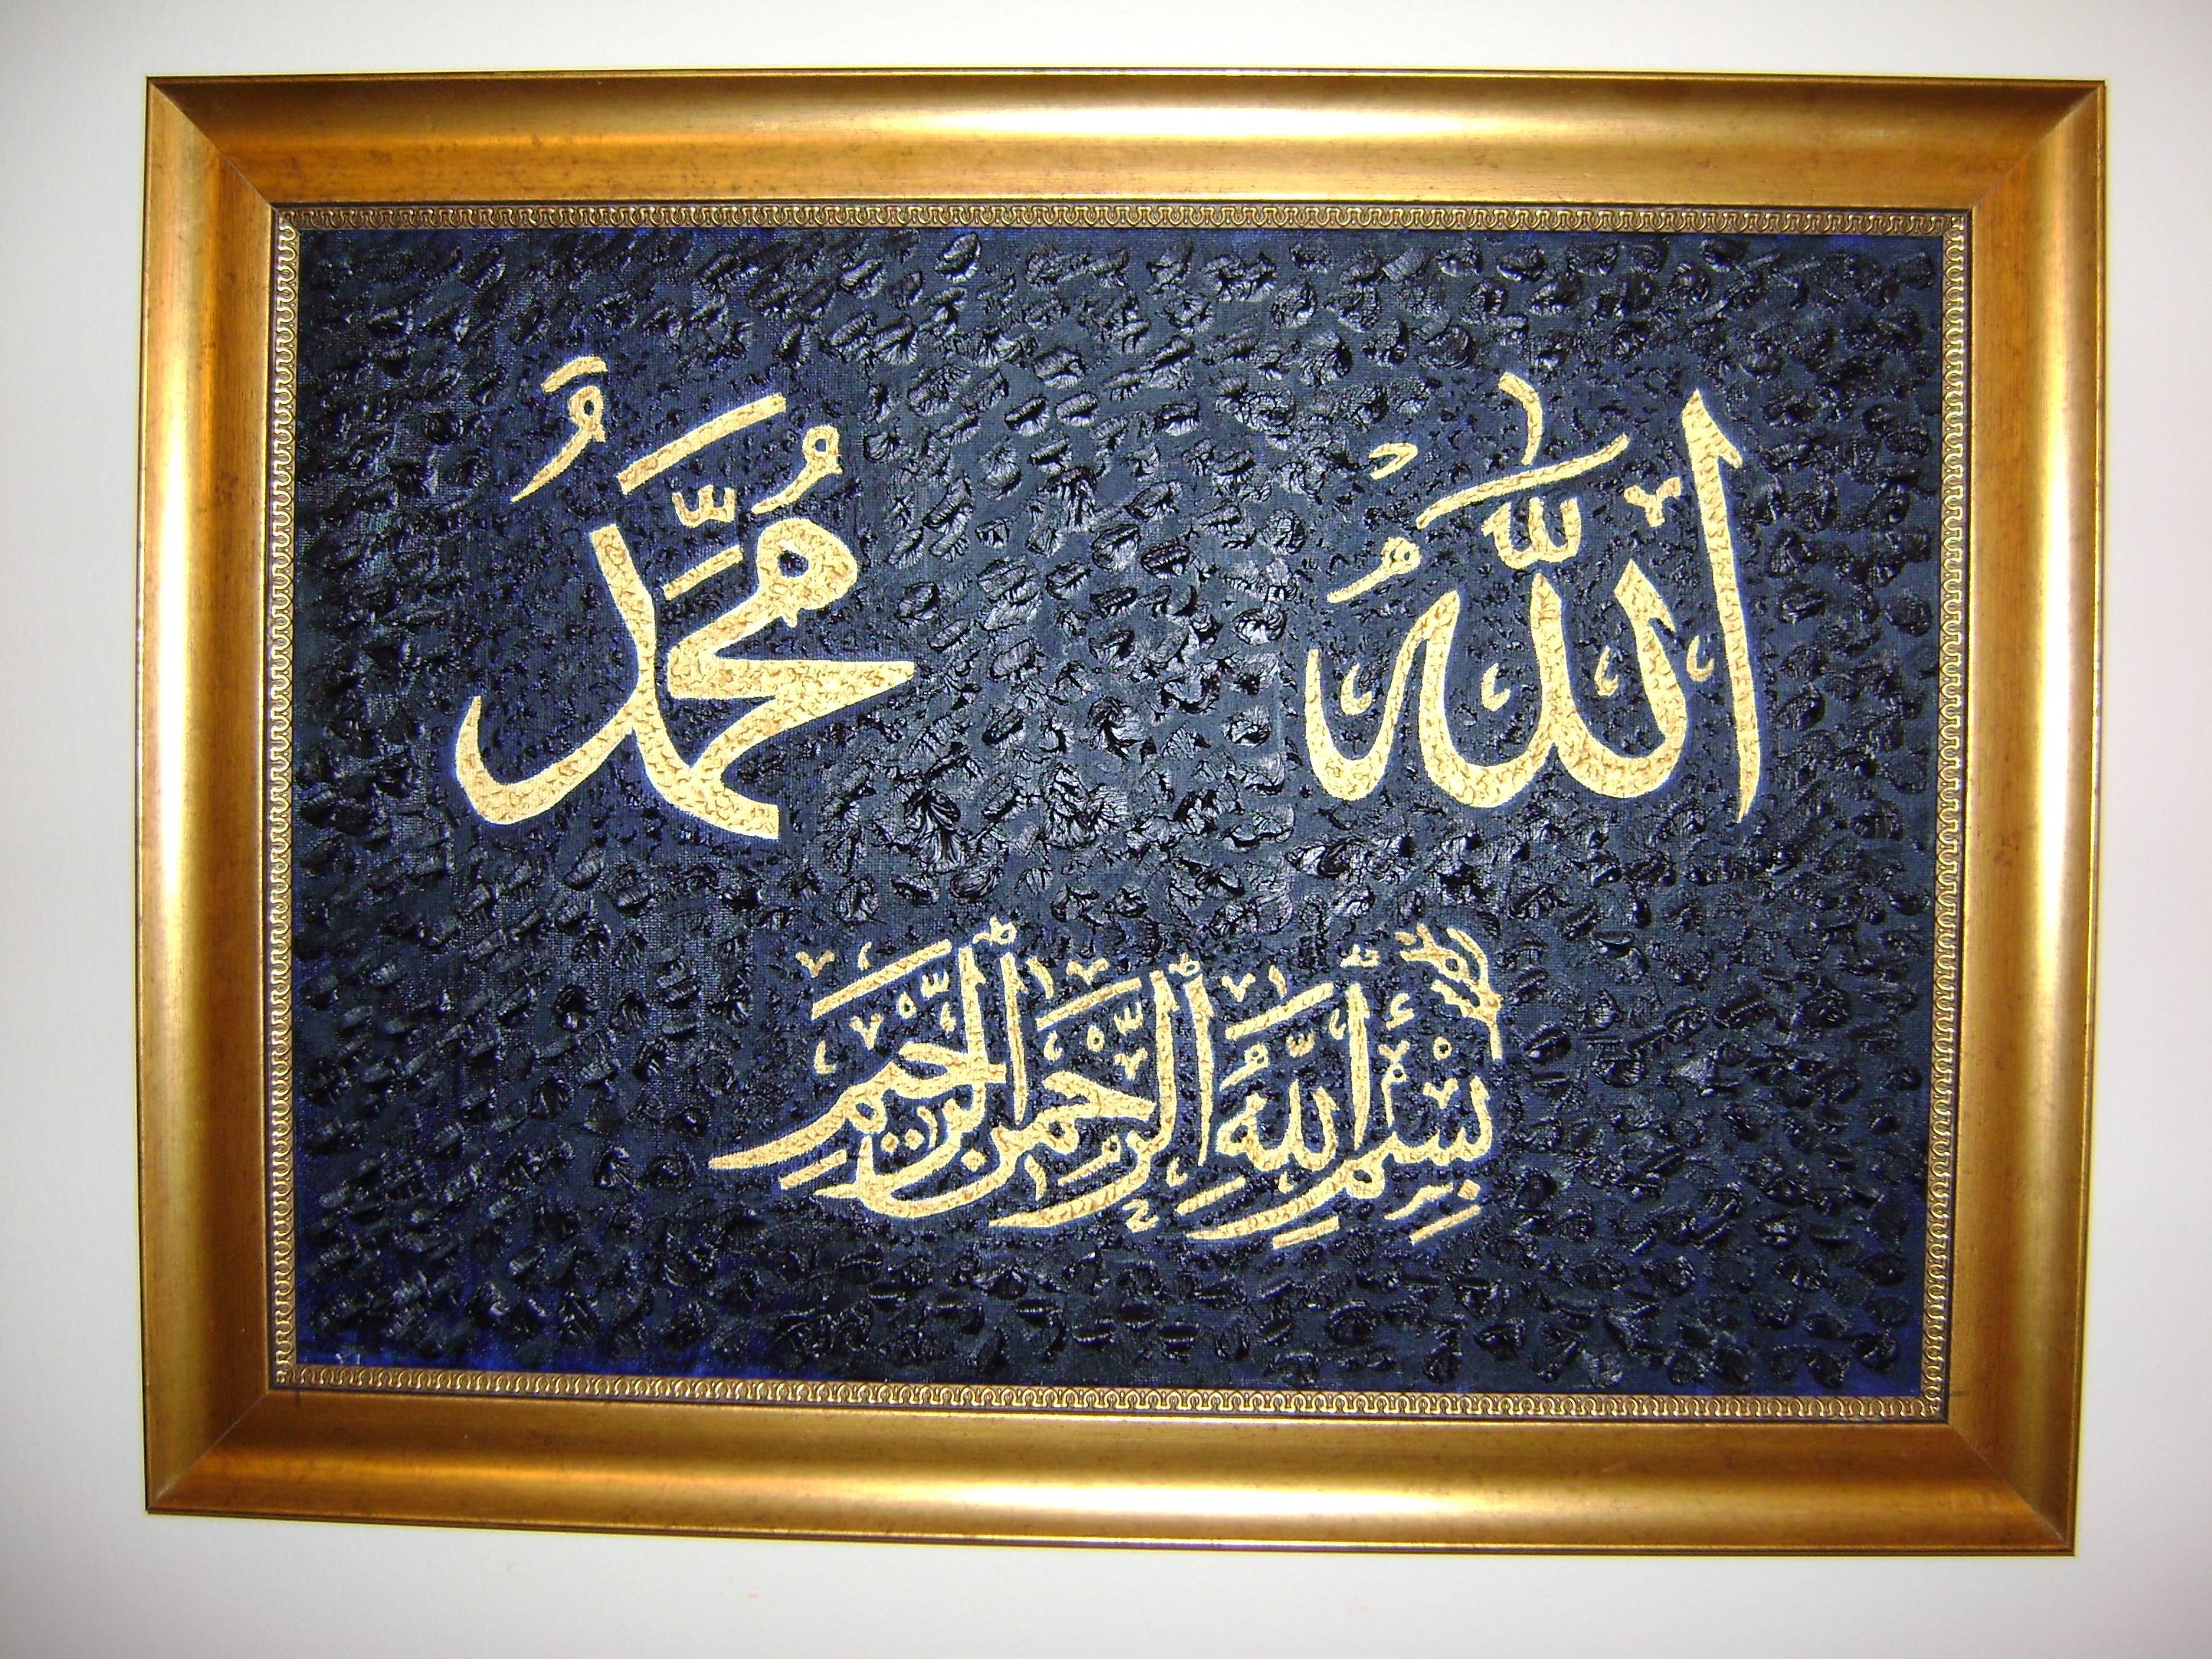 اللهُ مُحَمَّدٌ
بِسْمِ اللهِ الرَّحْمٰنِ الرَّحِيمِ